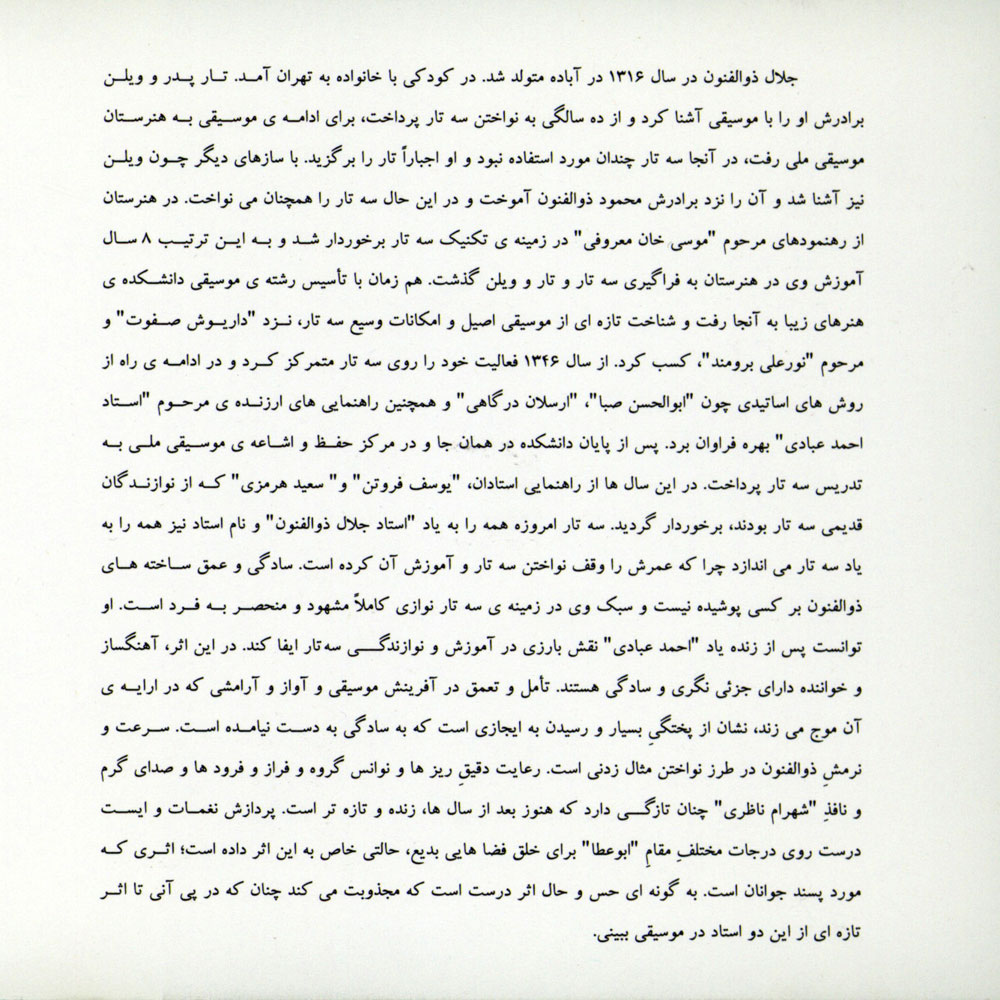 جلال ذوالفنون در سال ۱۳۱۶ در آباده متولد شد. در کودکی با خانواده به تهران آمد. تار پدر و ویلن
برادرش او را با موسیقی آشنا کرد و از ده سالگی به نواختن سه تار پرداخت، برای ادامه ی موسیقی به هنرستان
موسیقی ملی رفت، در آنجا سه تار چندان مورد استفاده نبود و او اجباراً تار را برگزید. با سازهای دیگر چون ویلن
نیز آشنا شد و آن را نزد برادرش محمود ذوالفنون آموخت و در این حال سه تار را همچنان می نواخت. در هنرستان
از رهنمودهای مرحوم "موسی خان معروفی" در زمینه ی تکنیک سه تار برخوردار شد و به این ترتیب ۸ سال
آموزش وی در هنرستان به فراگیری سه تار و تار و ویلن گذشت. هم زمان با تأسیس رشته ی موسیقی دانشکده ی
هنرهای زیبا به آنجا رفت و شناخت تازه ای از موسیقی اصیل و امکانات وسیع سه تار، نزد "داریوش صفوت" و
مرحوم "نورعلی برومند"، کسب کرد. از سال ۱۳۴۶ فعالیت خود را روی سه تار متمرکز کرد و در ادامه ی راه از
روش های اساتیدی چون "ابوالحسن صبا"، "ارسلان درگاهی" و همچنین راهنمایی های ارزنده ی مرحوم "استاد
احمد عبادی" بهره فراوان برد. پس از پایان دانشکده در همان جا و در مرکز حفظ و اشاعه ی موسیقی ملی به
تدریس سه تار پرداخت. در این سال ها از راهنمایی استادان، "یوسف فروتن" و" سعید هرمزی" که از نوازندگان
قدیمی سه تار بودند، برخوردار گردید. سه تار امروزه همه را به یاد "استاد جلال ذوالفنون" و نام استاد نیز همه را به
یاد سه تار می اندازد چرا که عمرش را وقف نواختن سه تار و آموزش آن کرده است. سادگی و عمق ساخته های
ذوالفنون بر کسی پوشیده نیست و سبک وی در زمینه ی سه تار نوازی کاملاً مشهود و منحصر به فرد است. او
توانست پس از زنده یاد "احمد عبادی" نقش بارزی در آموزش و نوازندگی سه تار ایفا کند. در این اثر، آهنگساز
و خواننده دارای جزئی نگری و سادگی هستند. تأمل و تعمق در آفرینش موسیقی و آواز و آرامشی که در ارایه ی
آن موج می زند، نشان از پختگیِ بسیار و رسیدن به ایجازی است که به سادگی به دست نیامده است. سرعت و
نرمشِ ذوالفنون در طرز نواختن مثال زدنی است. رعایت دقیقِ ریز ها و نوانس گروه و فراز و فرود ها و صدای گرم
و نافذِ "شهرام ناظری" چنان تازگی دارد که هنوز بعد از سال ها، زنده و تازه تر است. پردازش نغمات و ایست
درست روی درجات مختلفِ مقامِ "ابوعطا" برای خلق فضا هایی بدیع، حالتی خاص به این اثر داده است؛ اثری که
مورد پسند جوانان است. به گونه ای حس و حال اثر درست است که مجذوبت می کند چنان که در پی آنی تا اثر
تازه ای از این دو استاد در موسیقی ببینی.